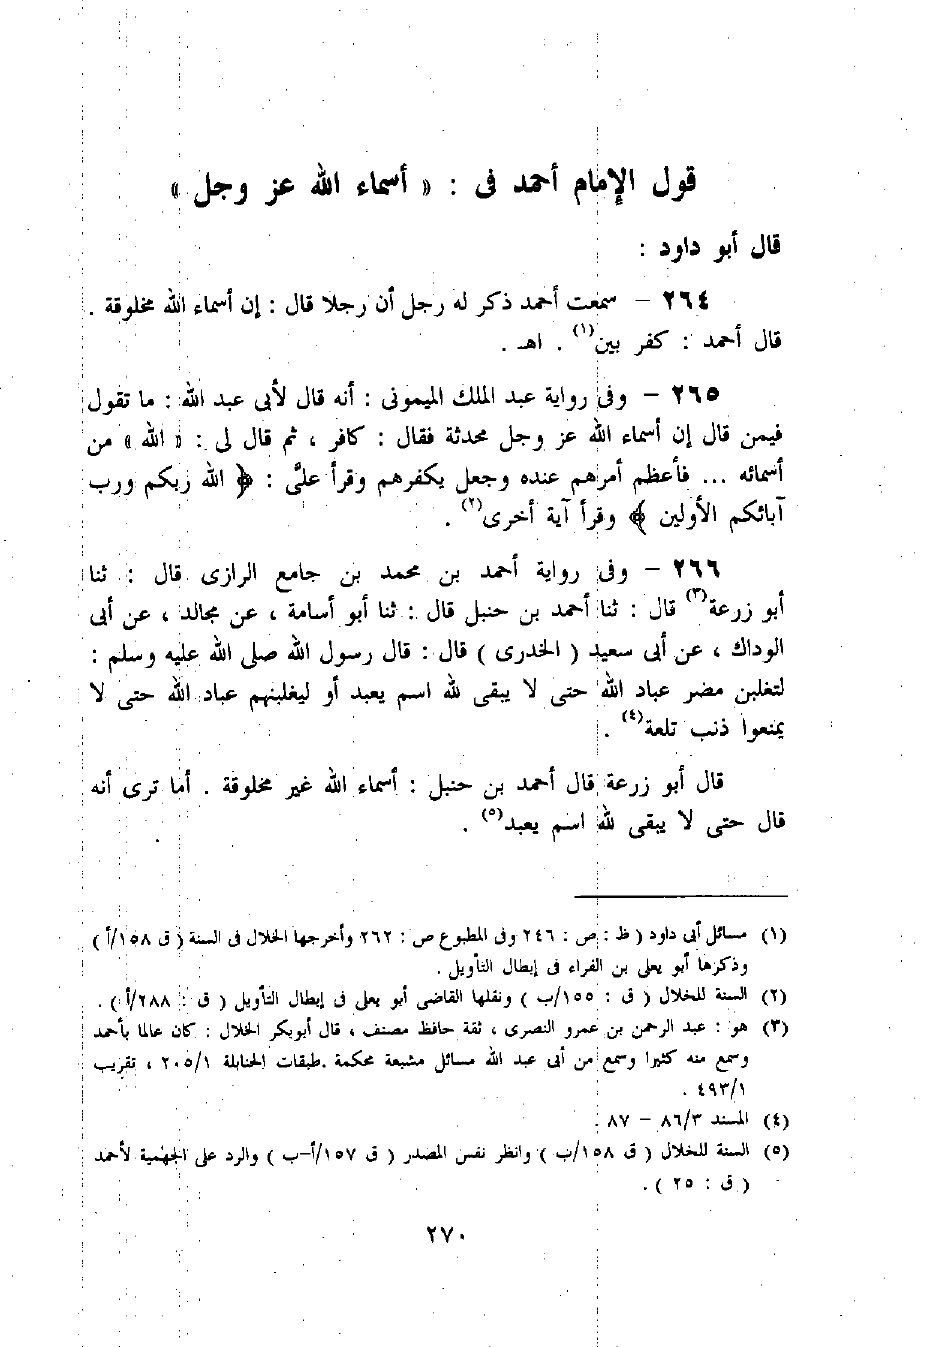 قول الإمام أحمد فى : « أسماء الله عز وجل »
قال أبو داود :
٢٦٤ – سمعت أحمد ذكر له رجل أن رجلا قال : إن أسماء الله مخلوقة .
قال أحمد : كفر بين(١) . اهـ .
٢٦٥ – وفى رواية عبد الملك الميمونى : أنه قال لأبى عبد الله : ما تقول
فيمن قال إن أسماء الله عز وجل محدثة فقال : كافر ، ثم قال لى : « الله » من
أسمائه ... فأعظم أمرهم عنده وجعل يكفرهم وقرأ علىَّ : ﴿ الله ربكم ورب
آبائكم الأولين ﴾ وقرأ آية أخرى(٢) .
٢٦٦ – وفى رواية أحمد بن محمد بن جامع الرازى قال : ثنا
أبو زرعة(٣) قال : ثنا أحمد بن حنبل قال : ثنا أبو أسامة ، عن مجالد ، عن أبى
الوداك ، عن أبى سعيد ( الخدرى ) قال : قال رسول الله صلى الله عليه وسلم :
لتغلبن مضر عباد الله حتى لا يبقى لله اسم يعبد أو ليغلبنهم عباد الله حتى لا
يمنعوا ذنب تلعة(٤) .
قال أبو زرعة قال أحمد بن حنبل : أسماء الله غير مخلوقة . أما ترى أنه
قال حتى لا يبقى لله اسم يعبد(٥) .
(١) مسائل أبى داود ( ظ : ص : ٢٤٦ وفى المطبوع ص : ٢٦٢ وأخرجها الخلال فى السنة ( ق ١٥٨/أ )
وذكرها أبو يعلى بن الفراء فى إبطال التأويل .
(٢) السنة للخلال ( ق : ١٥٥/ب ) ونقلها القاضى أبو يعلى فى إبطال التأويل ( ق : ٢٨٨/أ ) .
(٣) هو : عبد الرحمن بن عمرو النصرى ، ثقة حافظ مصنف ، قال أبوبكر الخلال : كان عالما بأحمد
وسمع منه كثيرا وسمع من أبى عبد الله مسائل مشبعة محكمة .طبقات الحنابلة ٢٠٥/١ ، تقريب
٤٩٣/١ .
(٤) المسند ٨٦/٣ – ٨٧ .
(٥) السنة للخلال ( ق ١٥٨/ب ) وانظر نفس المصدر ( ق ١٥٧/أ-ب ) والرد على الجهمية لأحمد
( ق : ٢٥ ) .
٢٧٠